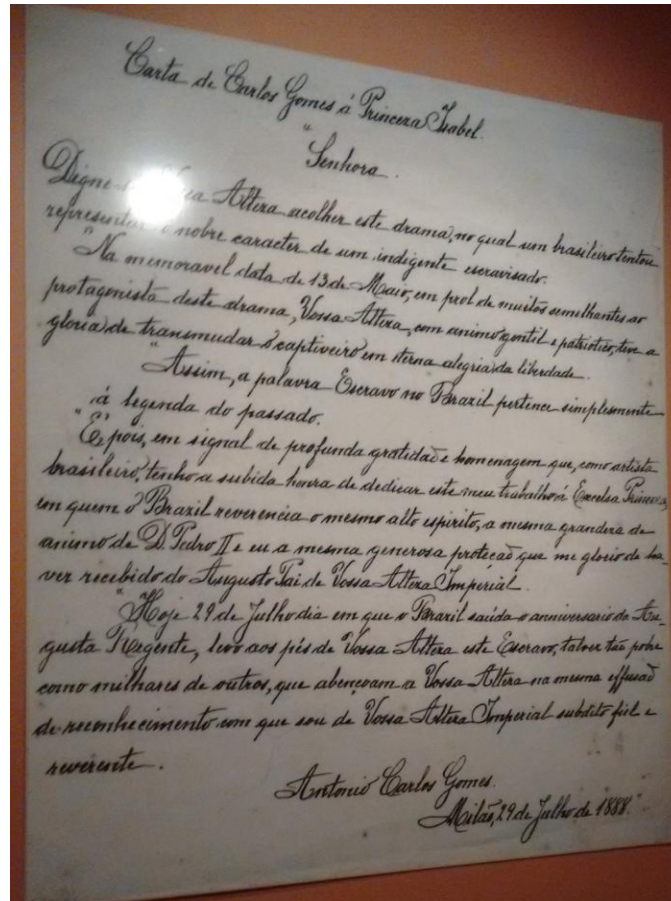 Carta de Carlos Gomes á Princeza Isabel.
" Senhora.
Digne-se Alteza acolher este drama, no qual um brasileiro tentou
representar o nobre caracter de um indigente escravisado.
"Na memoravel data de 13 de Maio, em prol de muitos semelhantes ao
protagonista deste drama, Vossa Alteza, com animo gentil e patriotico, teve a
gloria de transmudar o captiveiro em eterna alegria da liberdade.
"Assim, a palavra Escravo no Brazil pertence simplesmente
á legenda do passado.
"E' pois, em signal de profunda gratidaõ e homenagem que, como artista
brasileiro, tenho a subida honra de dedicar este meu trabalho á Excelsa Princeza,
em quem o Brazil reverencia o mesmo alto espirito, a mesma grandeza de
animo de D. Pedro II e eu a mesma generosa proteçaõ que me glorio de ha-
ver recebido do Augusto Pai de Vossa Alteza Imperial.
"Hoje 29 de Julho dia em que o Brazil saúda o anniversario da Au-
gusta Regente, levo aos pés de Vossa Alteza este Escravo, talvez taõ pobre
como milhares de outros, que abençoam a Vossa Alteza na mesma effusaõ
de reconhecimento com que sou de Vossa Alteza Imperial subdito fiel e
reverente.
Antonio Carlos Gomes.
Milaõ, 29 de Julho de 1888."